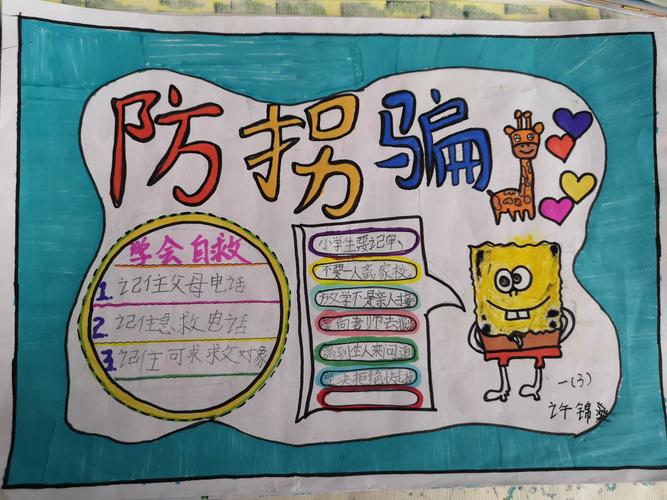 防拐骗
学会自救
1. 记住父母电话
2. 记住急救电话
3. 记住可求救对象
小学生要记牢,
不要一人离家校。
放学不是亲人接
要向老师去
遇到生人来问道
坚决拒绝快走
一(3)
许锦燊